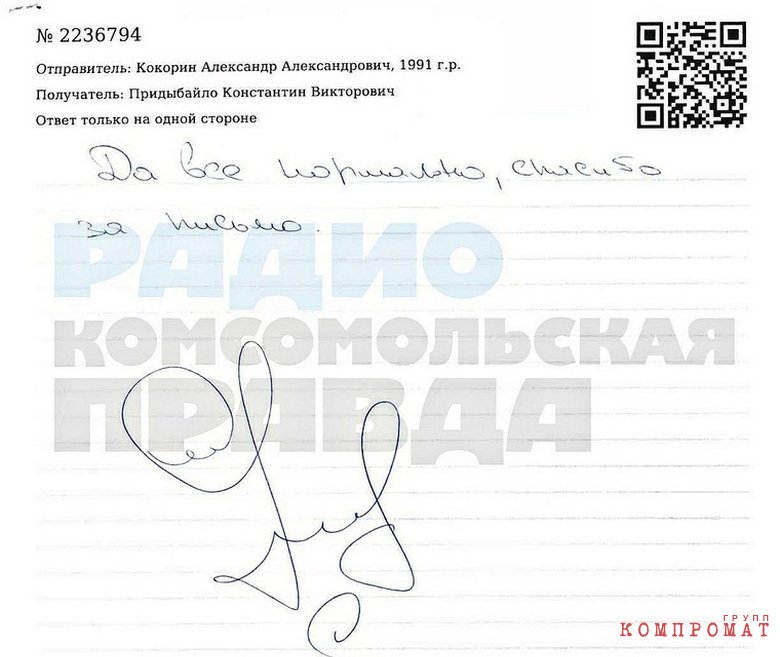 № 2236794
Отправитель: Кокорин Александр Александрович, 1991 г.р.
Получатель: Придыбайло Константин Викторович
Ответ только на одной стороне
Да все нормально, спасибо
за письмо.
РАДИО
КОМСОМОЛЬСКАЯ
ПРАВДА
ГРУПП
КОМПРОМАТ